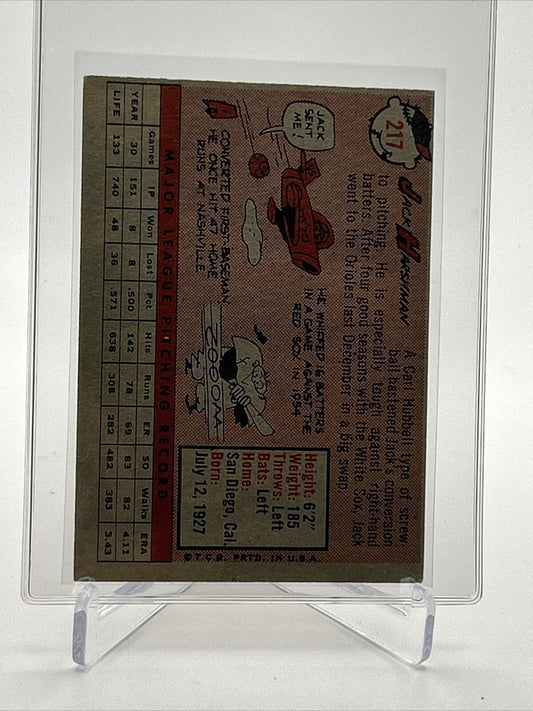 217
JACK HARSHMAN
A Carl Hubbell type of screw
ball hastened Jack's conversion
to pitching. He is especially tough against right-hand
batters. After four good seasons with the White Sox, Jack
went to the Orioles last December in a big swap.
JACK
SENT
ME!
CONVERTED FIRST-BASEMAN
HE ONCE HIT 47 HOME
RUNS AT NASHVILLE
HE WHIFFED 16 BATTERS
IN A GAME AGAINST THE
RED SOX IN 1954.
ZOOOM
Height: 6'2"
Weight: 185
Throws: Left
Bats: Left
Home:
San Diego, Cal.
Born:
July 12, 1927
© T.C.G. PRTD. IN U.S.A.
MAJOR LEAGUE PITCHING RECORD
Games IP Won Lost Pct Hits Runs ER SO Walks ERA
YEAR 30 151 8 8 .500 142 78 69 83 82 4.11
LIFE 133 740 48 36 .571 638 308 282 482 383 3.43